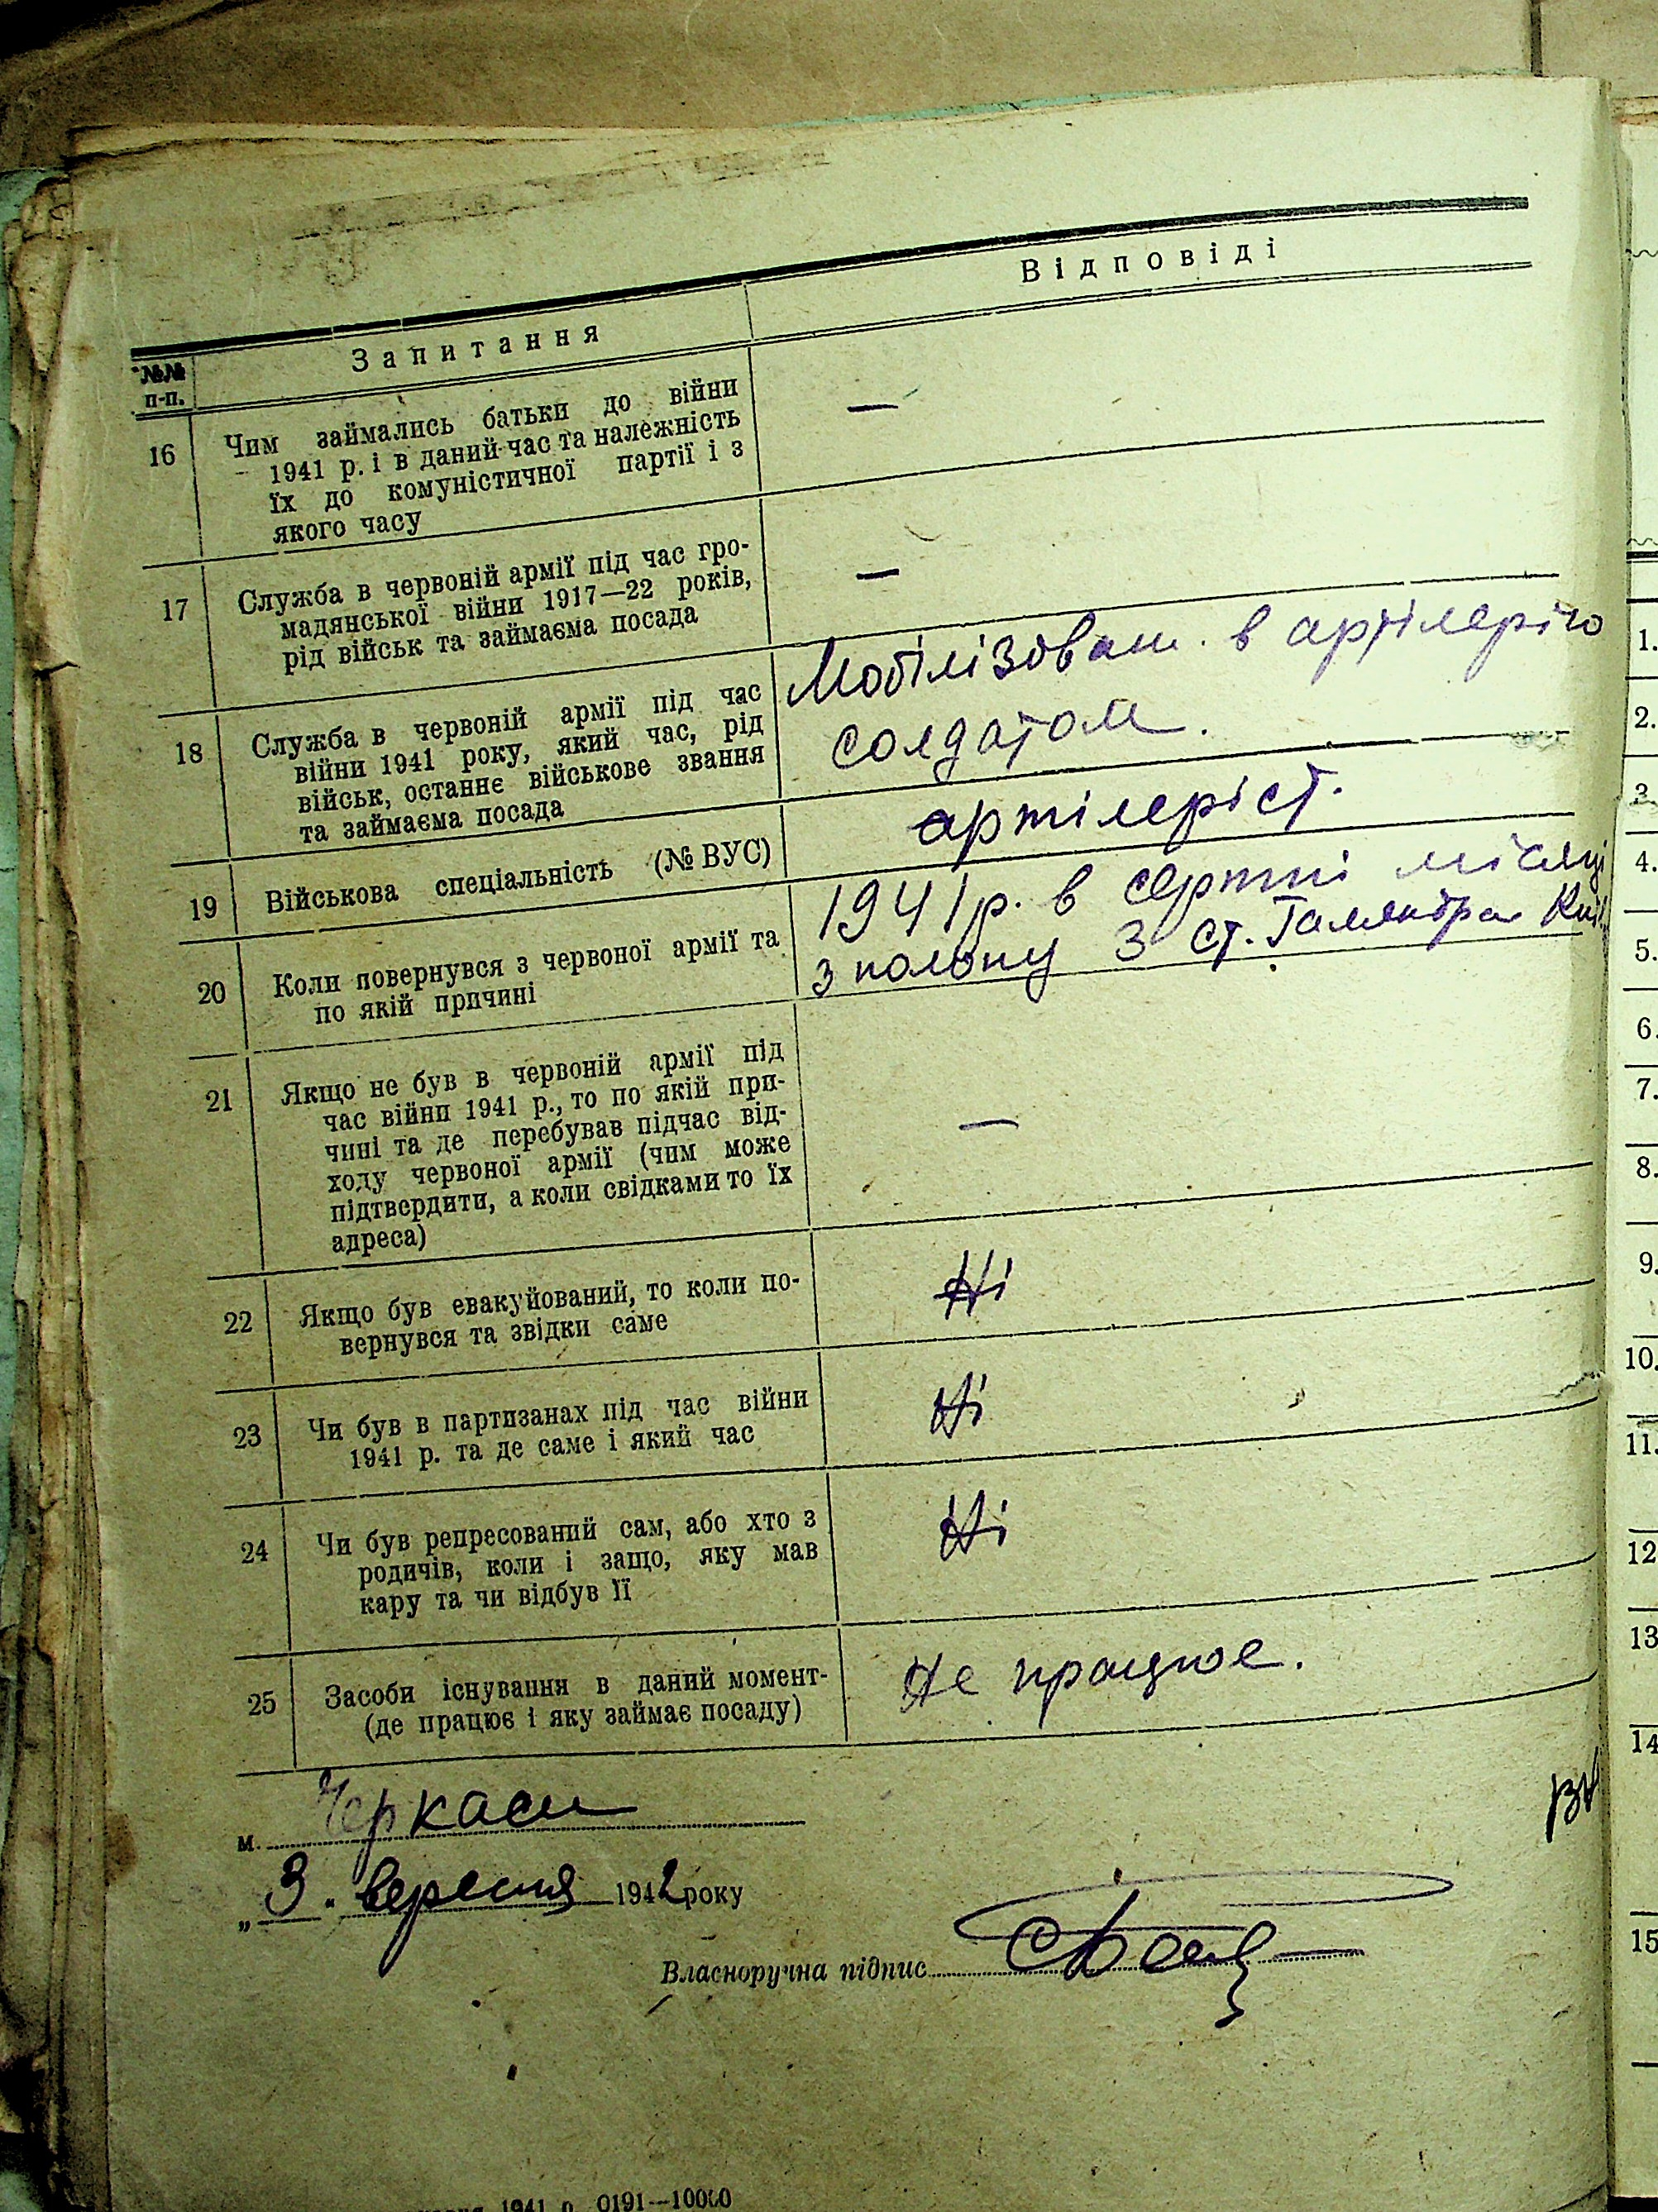 Відповіді
№№ Запитання
п-п.
16 Чим займались батьки до війни —
1941 р. і в даний час та належність
їх до комуністичної партії і з
якого часу
17 Служба в червоній армії під час гро- —
мадянської війни 1917—22 років,
рід військ та займаєма посада
18 Служба в червоній армії під час
війни 1941 року, який час, рід
військ, останнє військове звання
та займаєма посада
Мобілізован. в артілерію
солдатом.
19 Військова спеціальність (№ ВУС) артілеріст.
20 Коли повернувся з червоної армії та
по якій причині
1941 р. в серпні місяці
з полону З ст.
21 Якщо не був в червоній армії під
час війни 1941 р., то по якій при-
чині та де перебував підчас від- —
ходу червоної армії (чим може
підтвердити, а коли свідками то їх
адреса)
22 Якщо був евакуйований, то коли по- Ні
вернувся та звідки саме
23 Чи був в партизанах під час війни Ні
1941 р. та де саме і який час
24 Чи був репресований сам, або хто з Ні
родичів, коли і защо, яку мав
кару та чи відбув її
25 Засоби існування в даний момент- Не працює.
(де працює і яку займає посаду)
м. Черкаси
„3. вересня 1942 року
Власноручна підпис
1941 р. 0191—10000
1.
2.
3
4.
5.
6.
7.
8.
9.
10.
11.
12
13
14
15